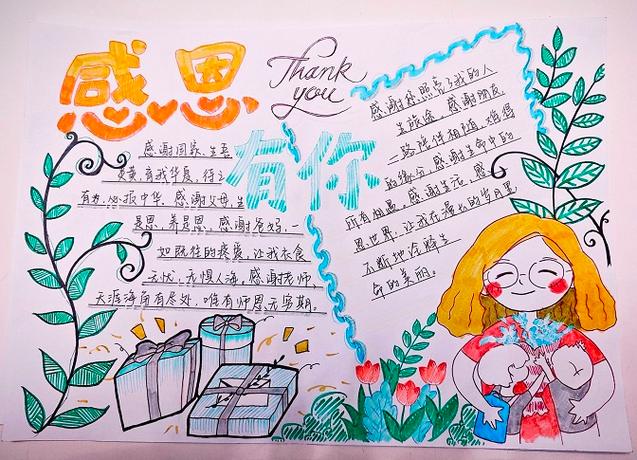 感恩
Thank
you
有你
感谢国家,生吾
炎黄,育我华夏,待之
有为,必报中华,感谢父母,生
是恩,养是恩,感谢爸妈,一
如既往的疼爱,让我衣食
无忧,无惧人海,感谢老师
天涯海角有尽处,唯有师恩无穷期。
感谢 照亮了我的人
生旅途。感谢朋友
一路陪伴相随,难得
的缘分,感谢生命中的
所有相遇。感谢生活,感
恩世界,让我在漫长的岁月里
不断地诠释生
命的美丽。